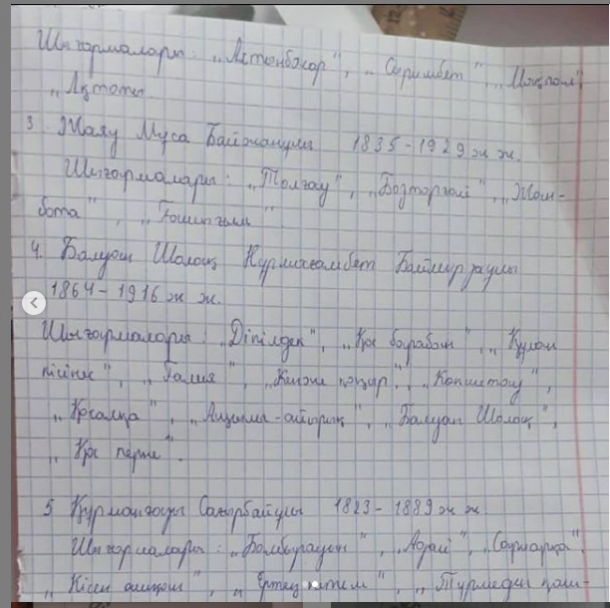 Шығармалары: „Ластынбасар", „Сырымбет", „Мақпал",
„Ақтоты
3. Жаяу Мұса Байжанұлы 1835-1929 ж ж.
Шығармалары: „Толғау", „Бозторғай",
бота",
4. Балуан Шолақ Нұрмағамбет Баймырзаұлы
1864-1916 ж ж.
Шығармалары: „Діпілдек", „Қос барабан", „Құлан
кісінес", „Ғалия", „Кенже қоңыр", „Көкшетау",
„Қосалқа", „Ащылы-айырық", „Балуан Шолақ",
„Қос перне".
5 Құрманғазы Сағырбайұлы 1823-1889 ж ж
Шығармалары: „Бомбырауын", „Адай", „Сарыарқа".
„Кісен ашқан", „Ертең кетем", „Түрмеден қаш-